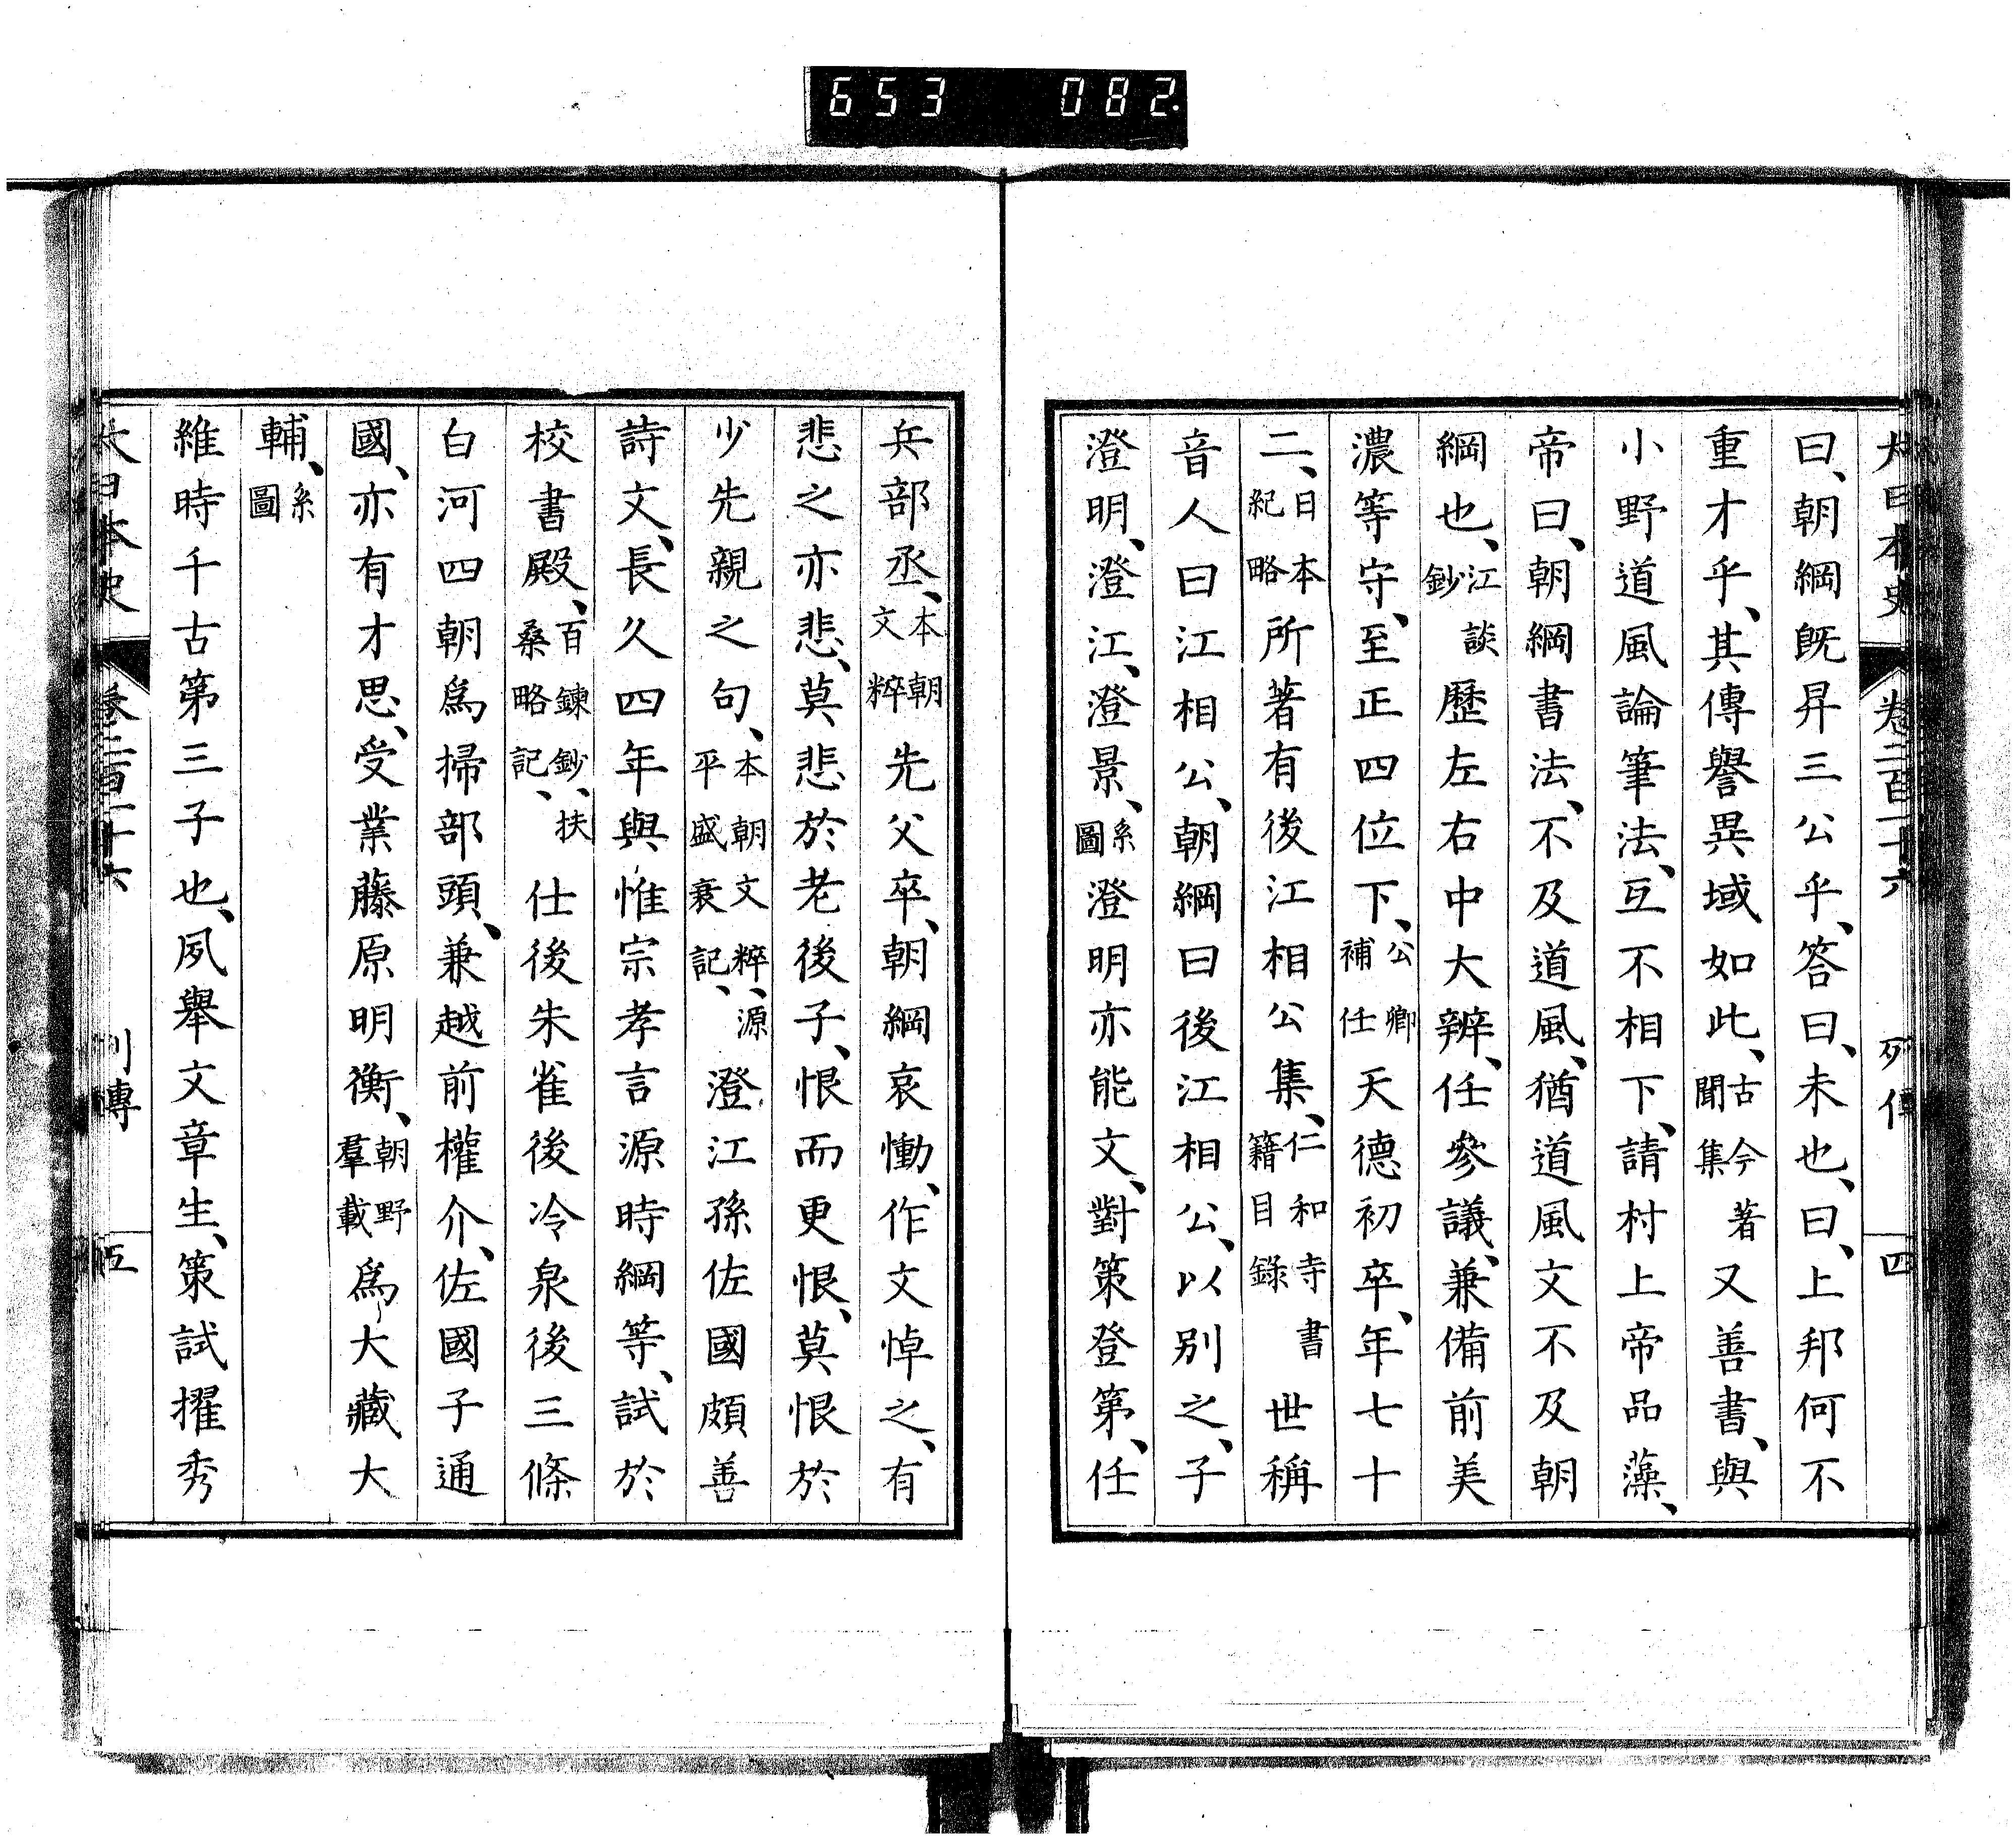 653 082
大日本史 卷二百一十六 列傳 四
曰、朝綱既昇三公乎、答曰、未也、曰、上邦何不
重才乎、其傳譽異域如此、古今著聞集又善書、與
小野道風論筆法、互不相下、請村上帝品藻、
帝曰、朝綱書法、不及道風、猶道風文不及朝
綱也、江談鈔歷左右中大辨、任參議、兼備前美
濃等守、至正四位下、公卿補任天德初卒、年七十
二、日本紀略所著有後江相公集、仁和寺書籍目錄世稱
音人曰江相公、朝綱曰後江相公、以別之、子
澄明、澄江、澄景、系圖澄明亦能文、對策登第、任
兵部丞、本朝文粹先父卒、朝綱哀慟、作文悼之、有
悲之亦悲、莫悲於老後子、恨而更恨、莫恨於
少先親之句、本朝文粹、源平盛衰記、澄江孫佐國頗善
詩文、長久四年與惟宗孝言源時綱等、試於
校書殿、百鍊鈔、扶桑略記、仕後朱雀後冷泉後三條
白河四朝爲掃部頭、兼越前權介、佐國子通
國、亦有才思、受業藤原明衡、朝野羣載爲大藏大
輔、系圖
維時千古第三子也、夙舉文章生、策試擢秀
大日本史 卷二百一十六 列傳 五